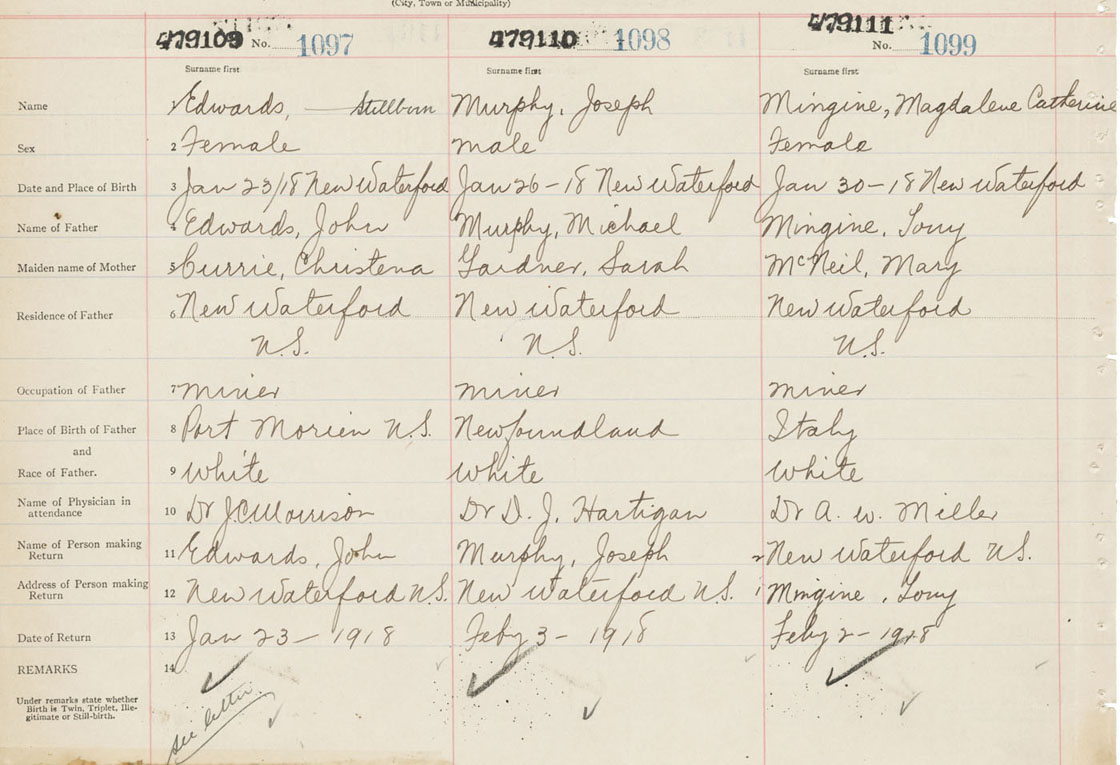 (City, Town or Municipality)
479109 No. 1097 479110 1098 479111 No. 1099
Surname first Surname first Surname first
Name Edwards, — Stillborn Murphy, Joseph Mingine, Magdalene Catherine
Sex 2 Female male Female
Date and Place of Birth 3 Jan 23/18 New Waterford Jan 26-18 New Waterford Jan 30-18 New Waterford
Name of Father 4 Edwards, John Murphy, Michael Mingine, Tony
Maiden name of Mother 5 Currie, Christena Gardner, Sarah McNeil, Mary
Residence of Father 6 New Waterford New Waterford New Waterford
N.S. N.S. N.S.
Occupation of Father 7 miner miner miner
Place of Birth of Father 8 Port Morien N.S. Newfoundland Italy
and
Race of Father. 9 White White White
Name of Physician in attendance 10 Dr J.C. Morrison Dr D. J. Hartigan Dr A. W. Miller
Name of Person making Return 11 Edwards, John Murphy, Joseph 2 New Waterford N.S.
Address of Person making Return 12 New Waterford N.S. New Waterford N.S. 1 Mingine, Tony
Date of Return 13 Jan 23-1918 Feby 3-1918 Feby 2-1918
REMARKS 14
Under remarks state whether
Birth is Twin, Triplet, Ille-
gitimate or Still-birth.
see letter.